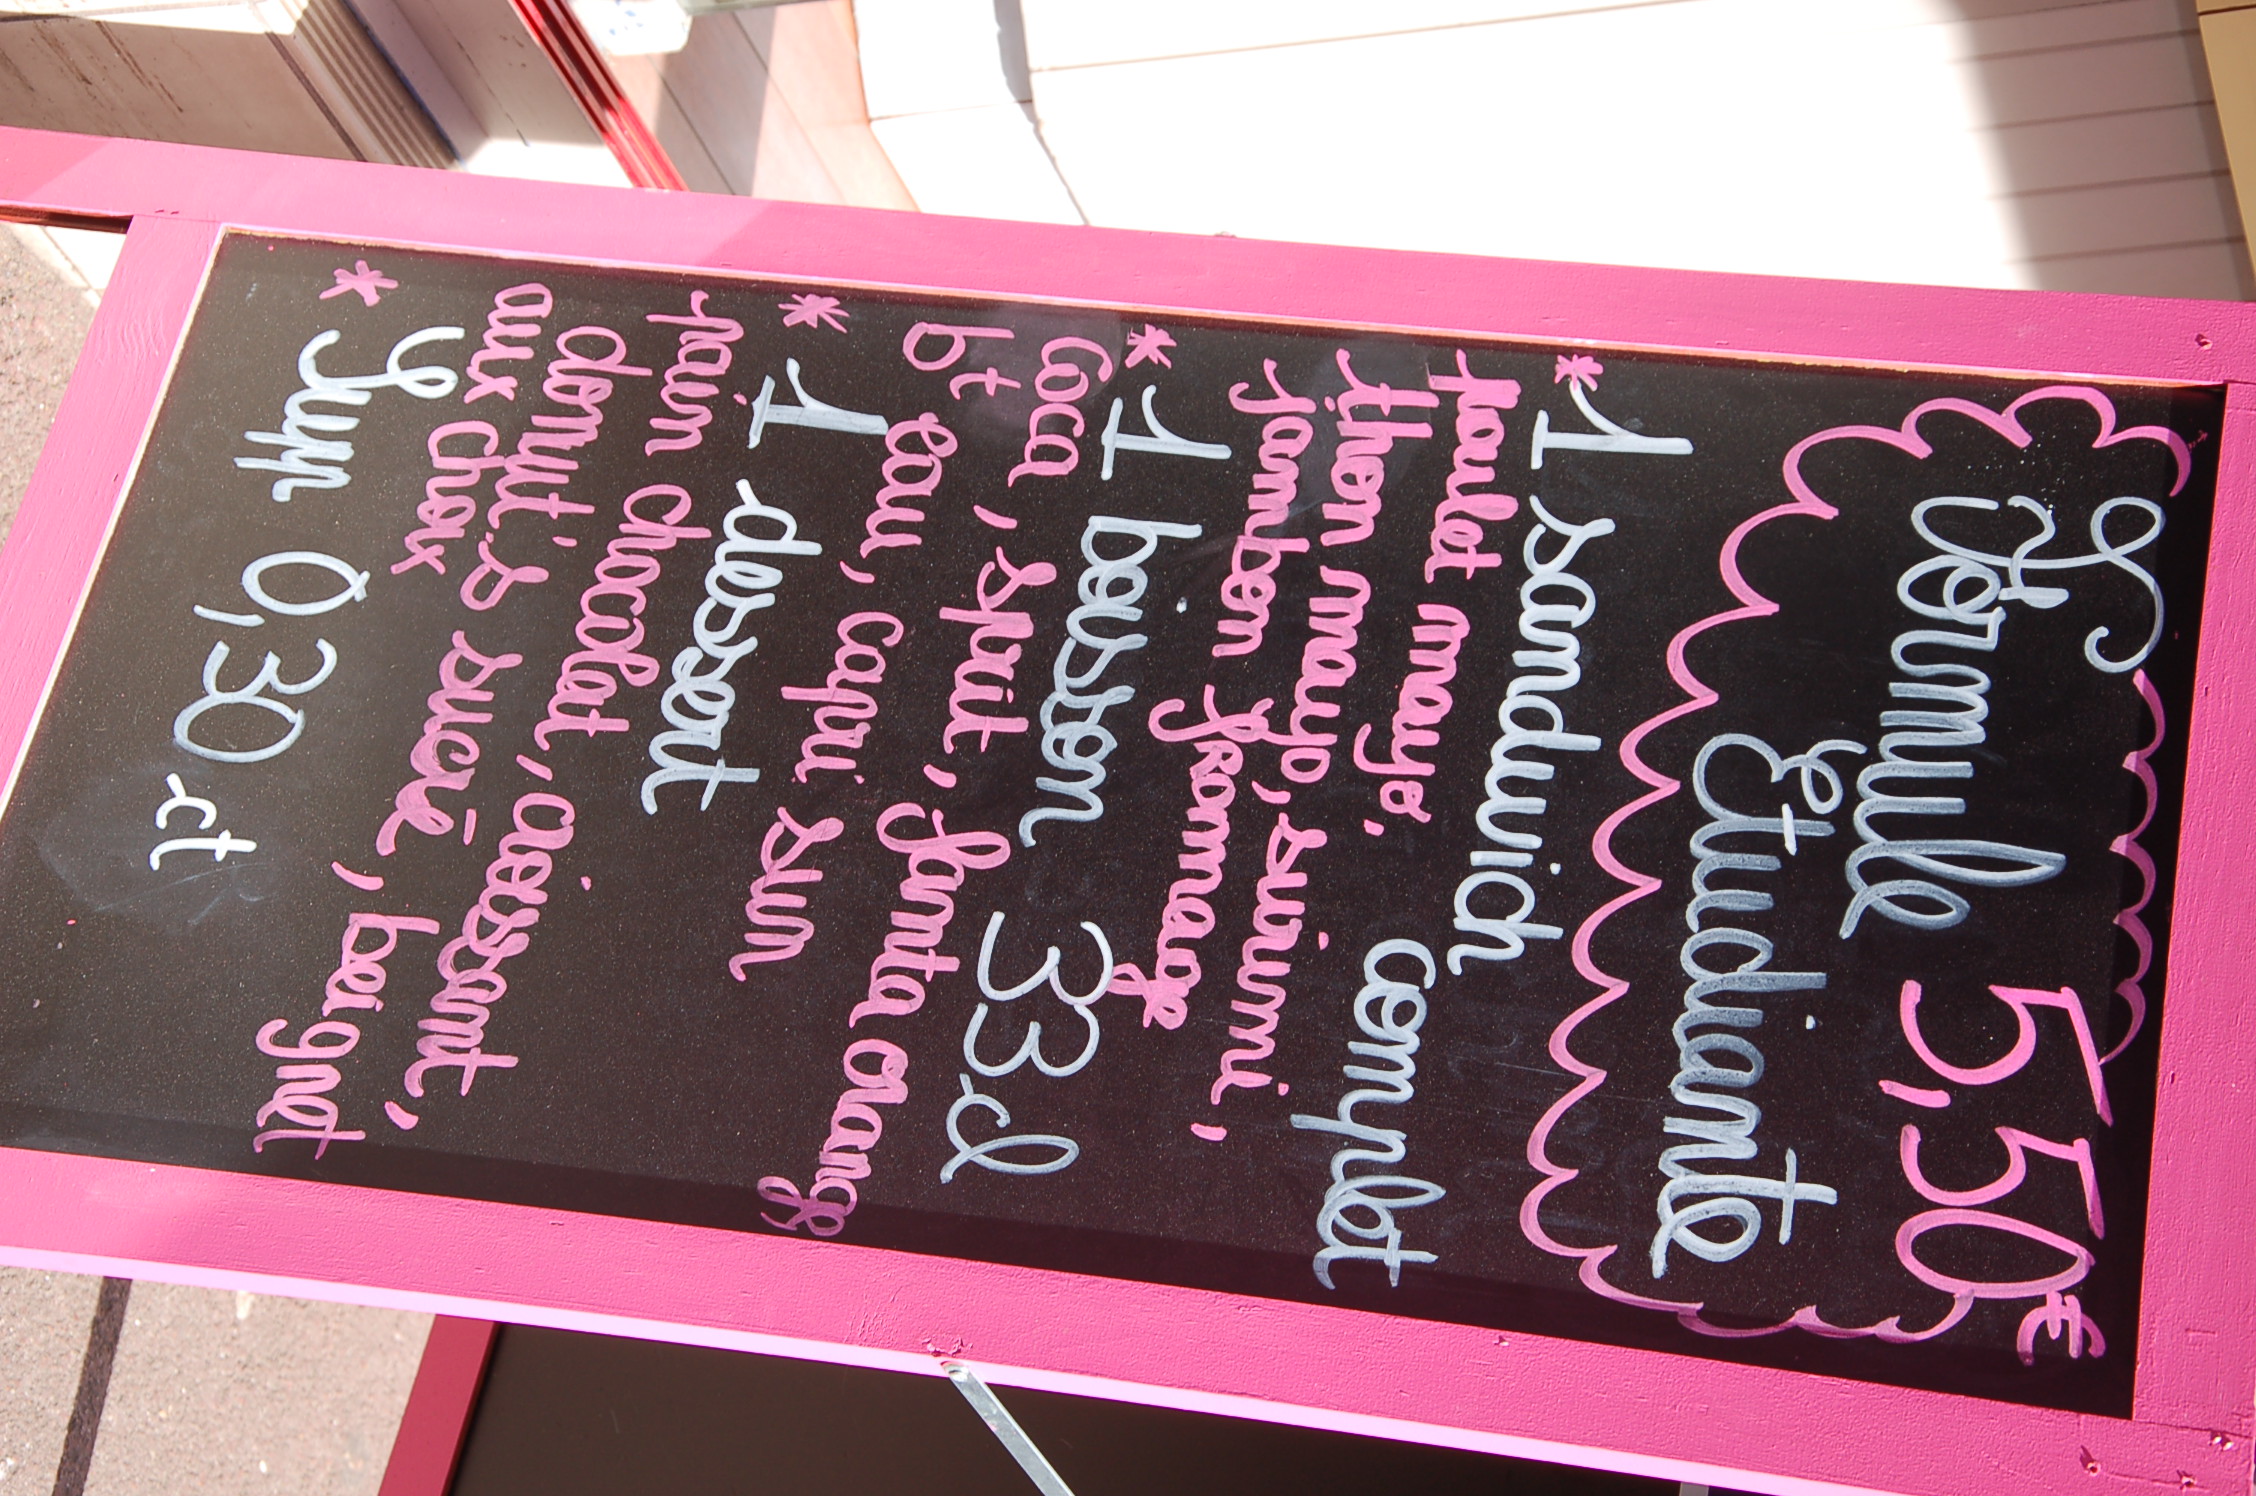 Formule 5,50€
Etudiante
*1 sandwich
complet
poulet mayo,
thon mayo, surimi,
jambon fromage
*1 boisson 33cl
coca, sprit, fanta orange,
bt eau, capri sun
*1 dessert
pain chocolat, croissant,
donut's sucré, beignet
aux choix
*Supp 0,30 ct